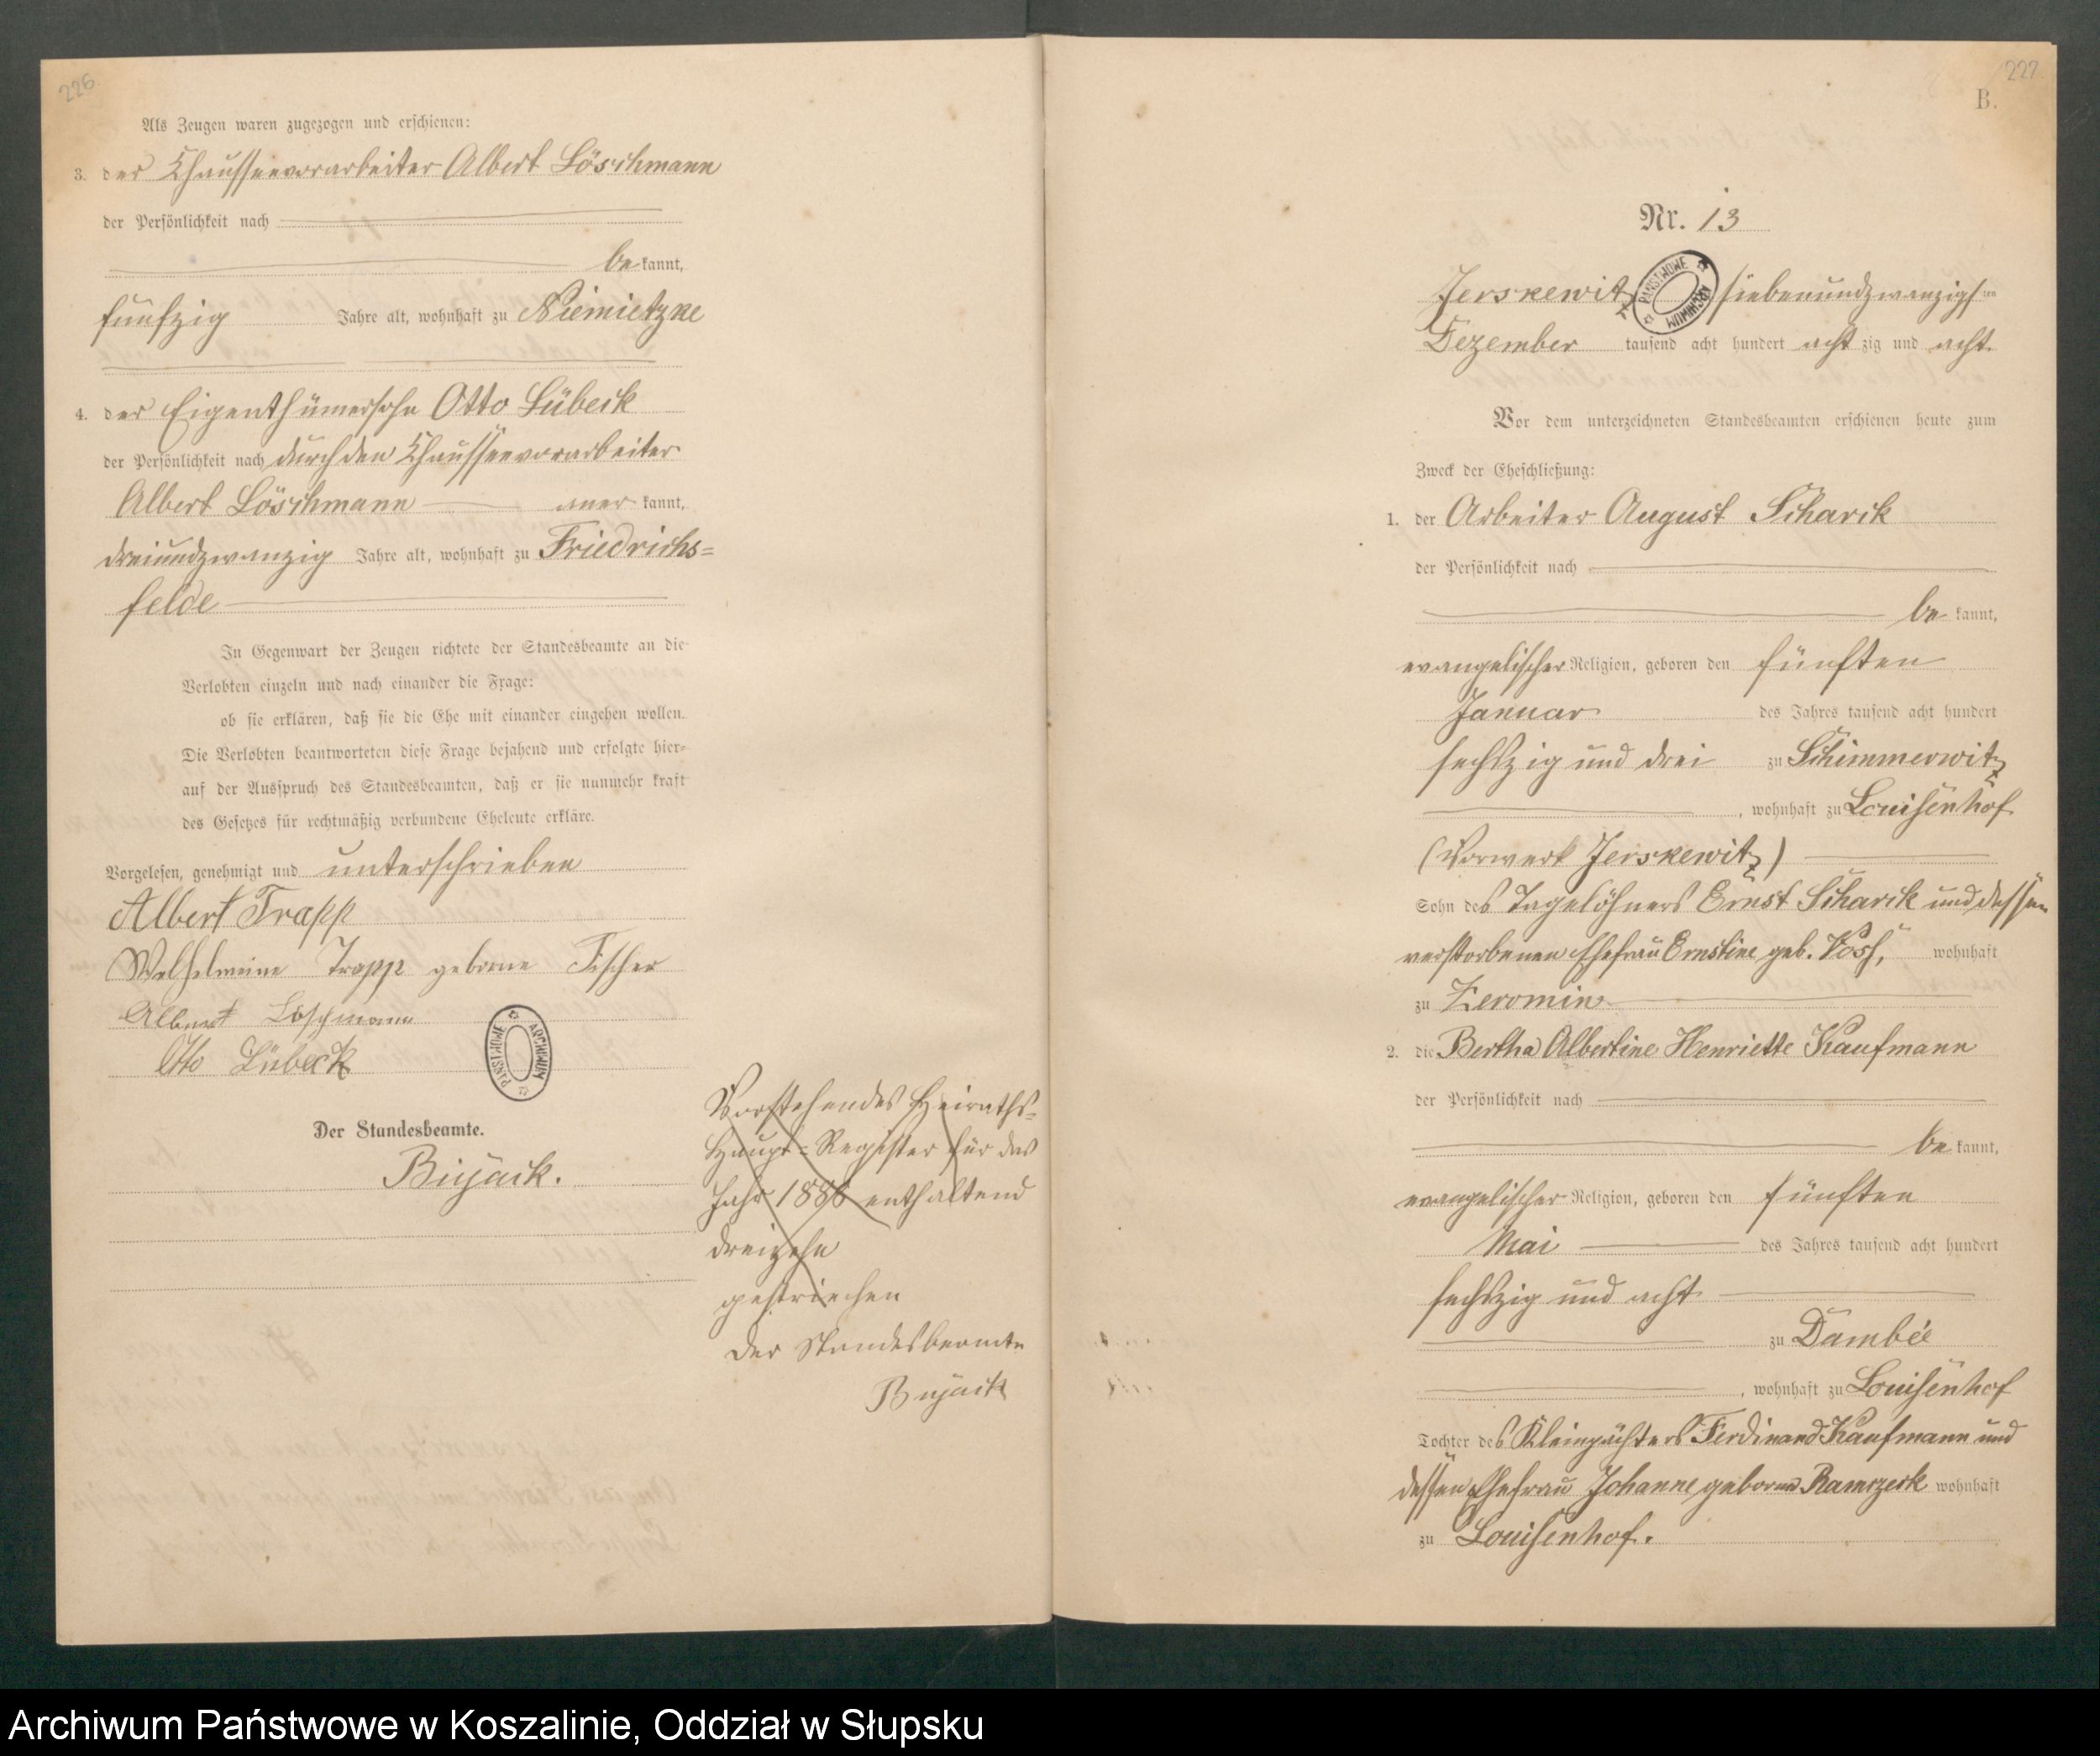 226.
Als Zeugen waren zugezogen und erschienen:
3. der Chausseevorarbeiter Albert Löschmann
der Persönlichkeit nach
be kannt,
fünfzig Jahre alt, wohnhaft zu Niemietzke
4. der Eigenthümersohn Otto Lübeck
der Persönlichkeit nach durch den Chausseevorarbeiter
Albert Löschmann aner kannt,
dreiundzwanzig Jahre alt, wohnhaft zu Friedrichs=
felde
In Gegenwart der Zeugen richtete der Standesbeamte an die
Verlobten einzeln und nach einander die Frage:
ob sie erklären, daß sie die Ehe mit einander eingehen wollen.
Die Verlobten beantworteten diese Frage bejahend und erfolgte hier=
auf der Ausspruch des Standesbeamten, daß er sie nunmehr kraft
des Gesetzes für rechtmäßig verbundene Eheleute erkläre.
Vorgelesen, genehmigt und unterschrieben
Albert Trapp
Trapp geborne Fischer
Albert Loschmann
Otto Lübeck
PAŃSTWOWE ARCHIWUM
Der Standesbeamte.
Bujack.
Vorstehendes Heiraths=
Haupt=Register für das
Jahr 1886 enthaltend
dreizehn
gestrichen
Der Standesbeamte
Bujack
227
B.
Nr. 13
Jerskewitz siebenundzwanzigsten
PAŃSTWOWE ARCHIWUM
Dezember tausend acht hundert acht zig und acht
Vor dem unterzeichneten Standesbeamten erschienen heute zum
Zweck der Eheschließung:
1. der Arbeiter August Scharck
der Persönlichkeit nach
be kannt,
evangelischer Religion, geboren den fünften
Januar des Jahres tausend acht hundert
sechszig und drei zu Schimmerwitz
, wohnhaft zu Louisenhof
(Vorwerk Jerskewitz)
Sohn des Tagelöhners Ernst Scharck und dessen
verstorbenen Ehefrau Ernstine geb. Voss, wohnhaft
zu Zeromin
2. die Bertha Albertine Henriette Kaufmann
der Persönlichkeit nach
be kannt,
evangelischer Religion, geboren den fünften
Mai des Jahres tausend acht hundert
sechszig und acht
zu Dambee
, wohnhaft zu Louisenhof
Tochter des Kleinpächters Ferdinand Kaufmann und
dessen Ehefrau Johanne geborne wohnhaft
zu Louisenhof.
Archiwum Państwowe w Koszalinie, Oddział w Słupsku